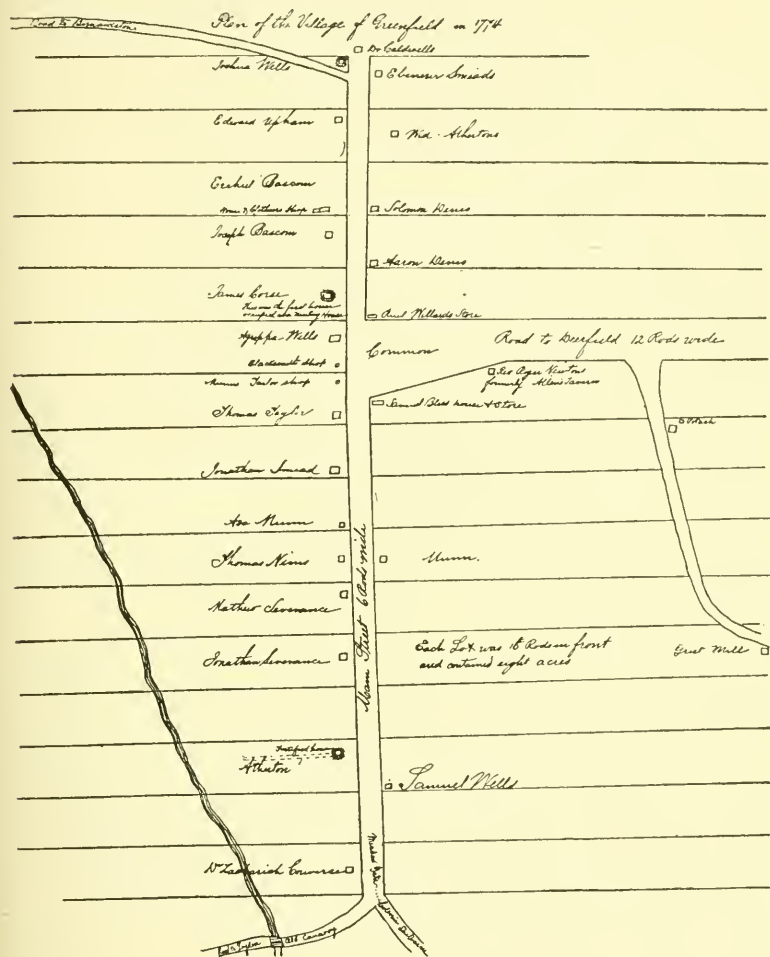 Plan of the Village of Greenfield in 1774
Road to Bernardston
Dr Caldwells
Joshua Wells
Ebenezer Smeads
Edward Upham
Wid. Athertons
Ezekiel Bascom
Shop
Solomon Denio
Joseph Bascom
Aaron Denio
James Corse
This was the first house
occupied as a Meeting House
Ruel Willards Store
Agrippa Wells
Common
Road to Deerfield 12 Rods wide
Blacksmith Shop
Rev Roger Newtons
formerly Allens Tavern
Munns Tailor shop
Samuel house & Store
Thomas Taylor
Jonathan Smead
Asa Munn
Thomas Nims
Munn.
Mathew Severance
Main Street 6 Rods wide
Each Lot was 16 Rods in front
and contained eight acres
Grist Mill
Jonathan Severance
Fortified house
Atherton
Samuel Wells
Dr Zachariah Converse
Meadow Gate
Old Causway